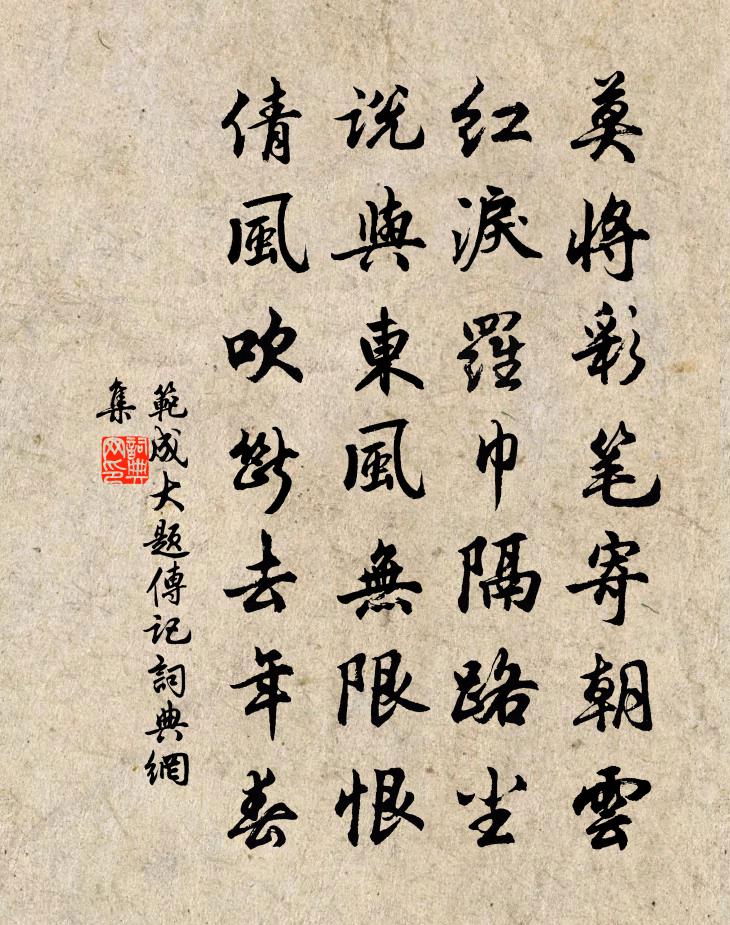 莫將彩笔寄朝雲
紅淚羅巾隔路尘
說與東風無限恨
倩風吹斷去年春
範成大題傳記詞典網
集
詞典
网印